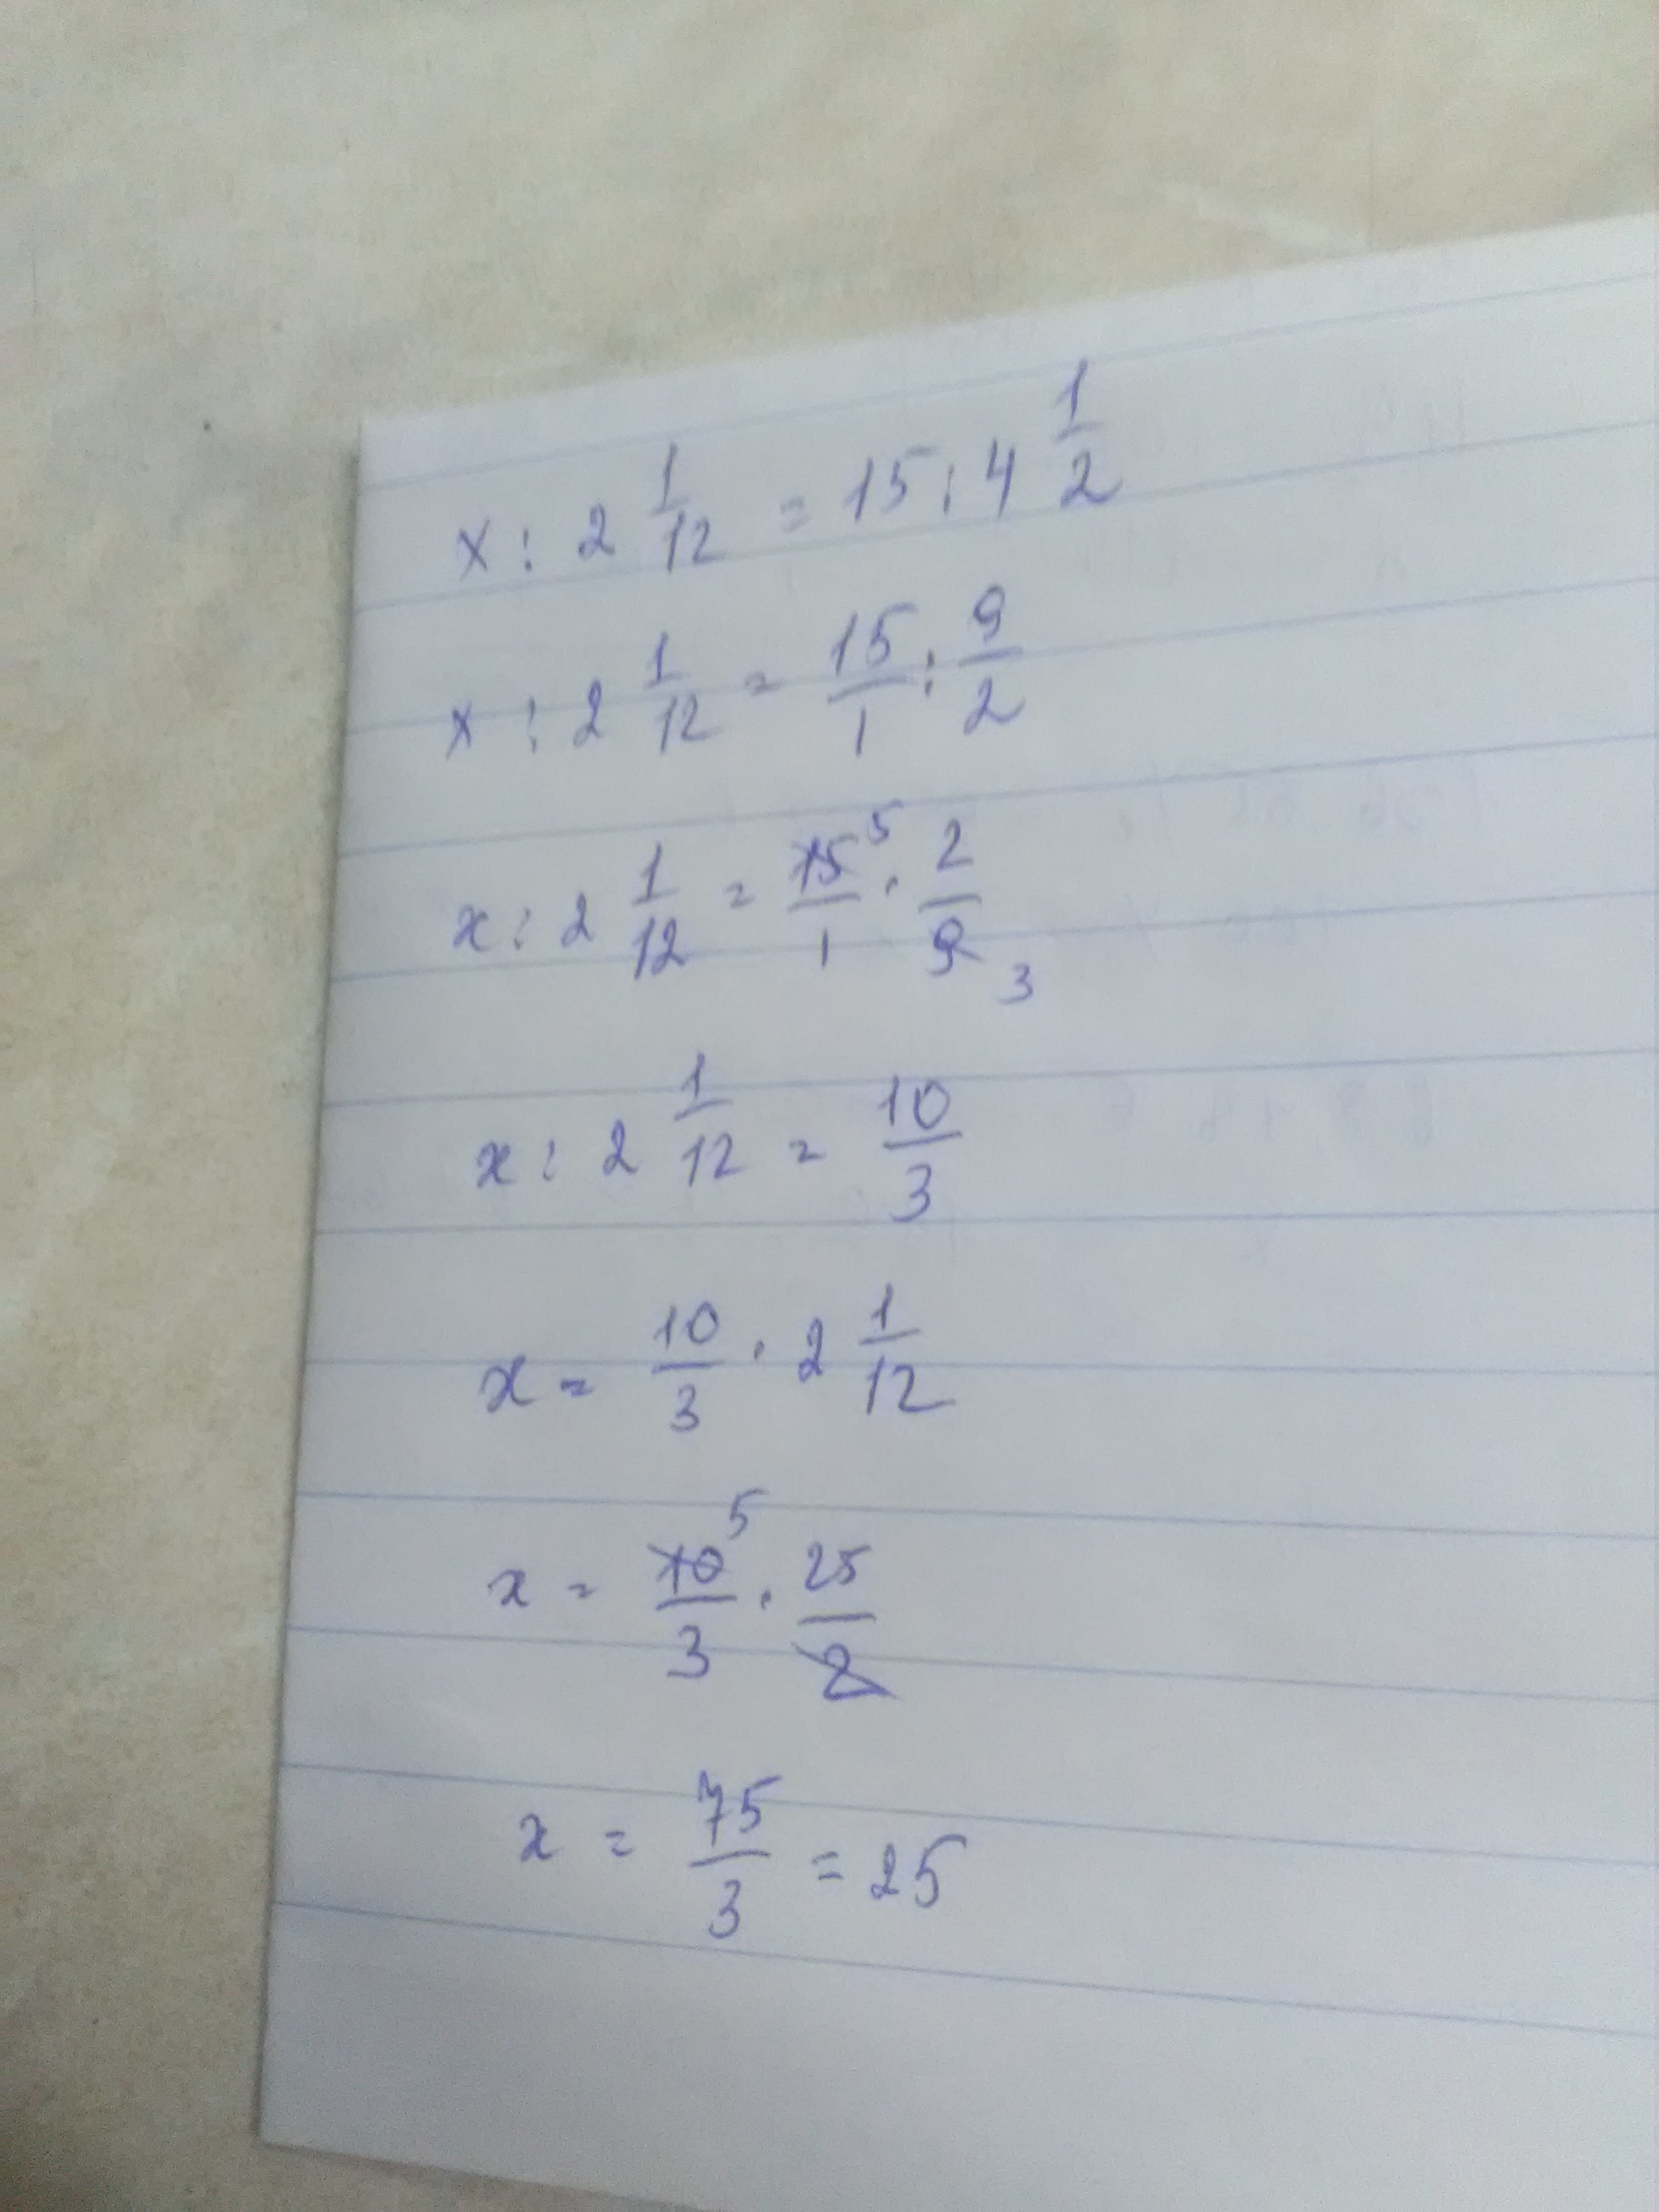 x : 2 1/12 = 15 : 4 1/2
x : 2 1/12 = 15/1 : 9/2
x : 2 1/12 = 15 5/1 · 2/9 3
x : 2 1/12 = 10/3
x = 10/3 · 2 1/12
x = 10 5/3 · 25/2
x = 75/3 = 25